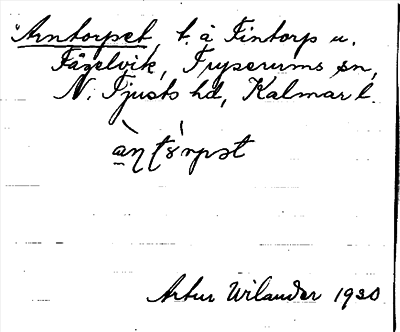 "Arntorpet, t. å Fintorp u.
Fågelvik, Tryserums sn,
N. Tjusts hd, Kalmar l.
Artur Wilander 1920